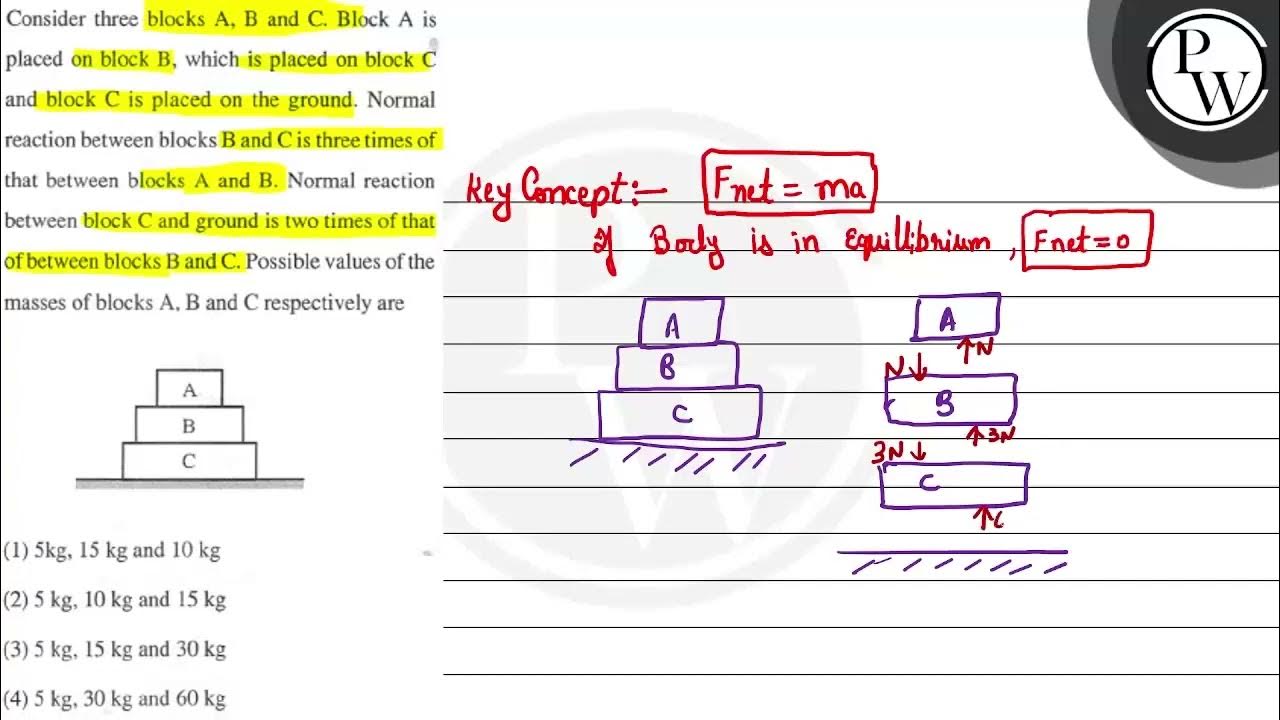 Consider three blocks A, B and C. Block A is
placed on block B, which is placed on block C
and block C is placed on the ground. Normal
reaction between blocks B and C is three times of
that between blocks A and B. Normal reaction
between block C and ground is two times of that
of between blocks B and C. Possible values of the
masses of blocks A, B and C respectively are
A
B
C
(1) 5kg, 15 kg and 10 kg
(2) 5 kg, 10 kg and 15 kg
(3) 5 kg, 15 kg and 30 kg
(4) 5 kg, 30 kg and 60 kg
P
W
Key Concept:- Fnet = ma
If Body is in Equillibrium, Fnet=0
A
B
C
A
N
N
B
3N
3N
C